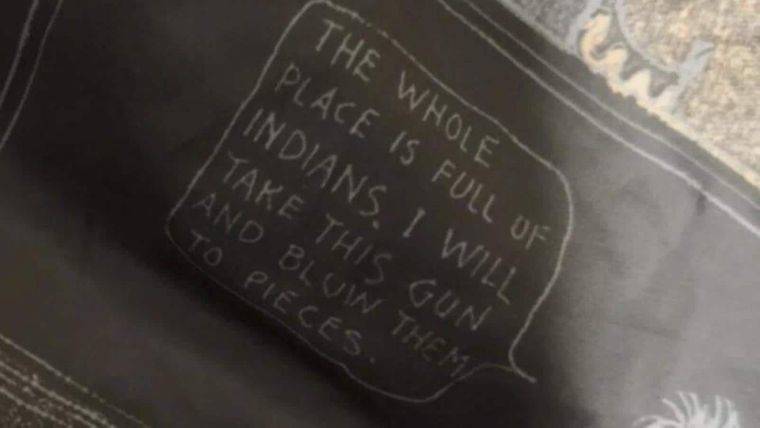 THE WHOLE
PLACE IS FULL OF
INDIANS. I WILL
TAKE THIS GUN
AND BLOW THEM
TO PIECES.